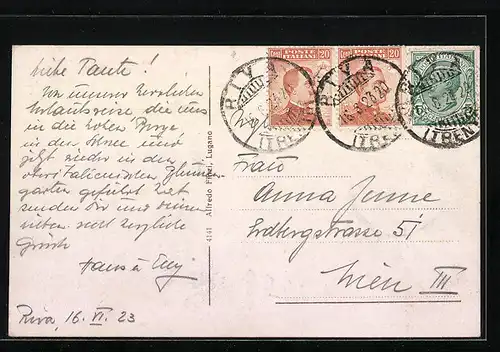 Liebe Tante!
Von unserer herrlichen
Urlaubsreise die uns
in die hohen Berge
in den Schnee und
jetzt wieder in den
oberitalienischen Blumen
garten geführt hat
senden dir und deinen
lieben recht herzliche
Grüsse
Hans &
Riva, 16. VI. 23
4141 Alfredo Finzi, Lugano
Cent. POSTE ITALIANE 20
POSTE ITALIANE 20
RIVA
(TREN
RIVA
16.6.23.20
(TREN
(TREN
Frau
Anna Jenne
Erdbergstrasse 51
Wien III